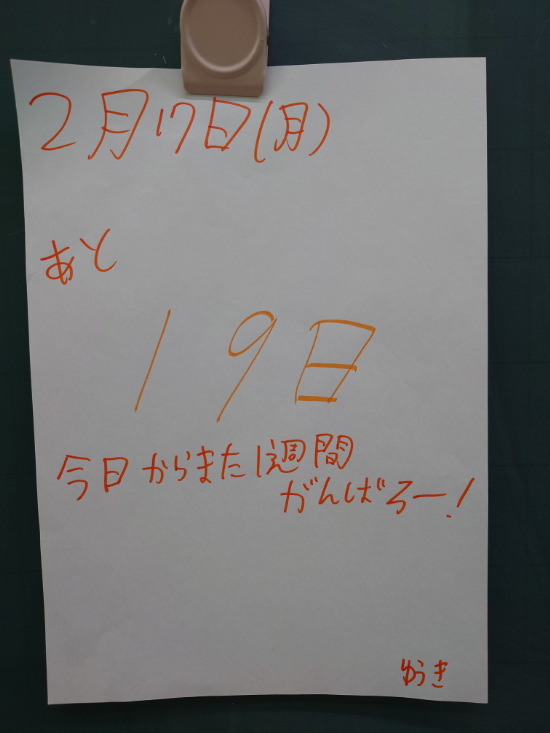 2月17日(月)
あと
19日
今日からまた1週間
がんばろー!
ゆうき